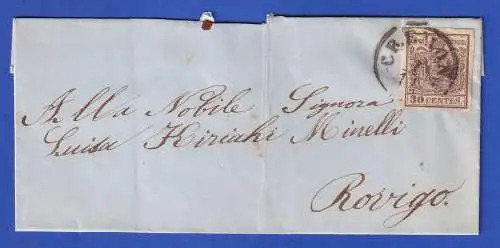 30 CENTES.
Alla Nobile Signora
Luisa Kiriaki Minelli
Rovigo.